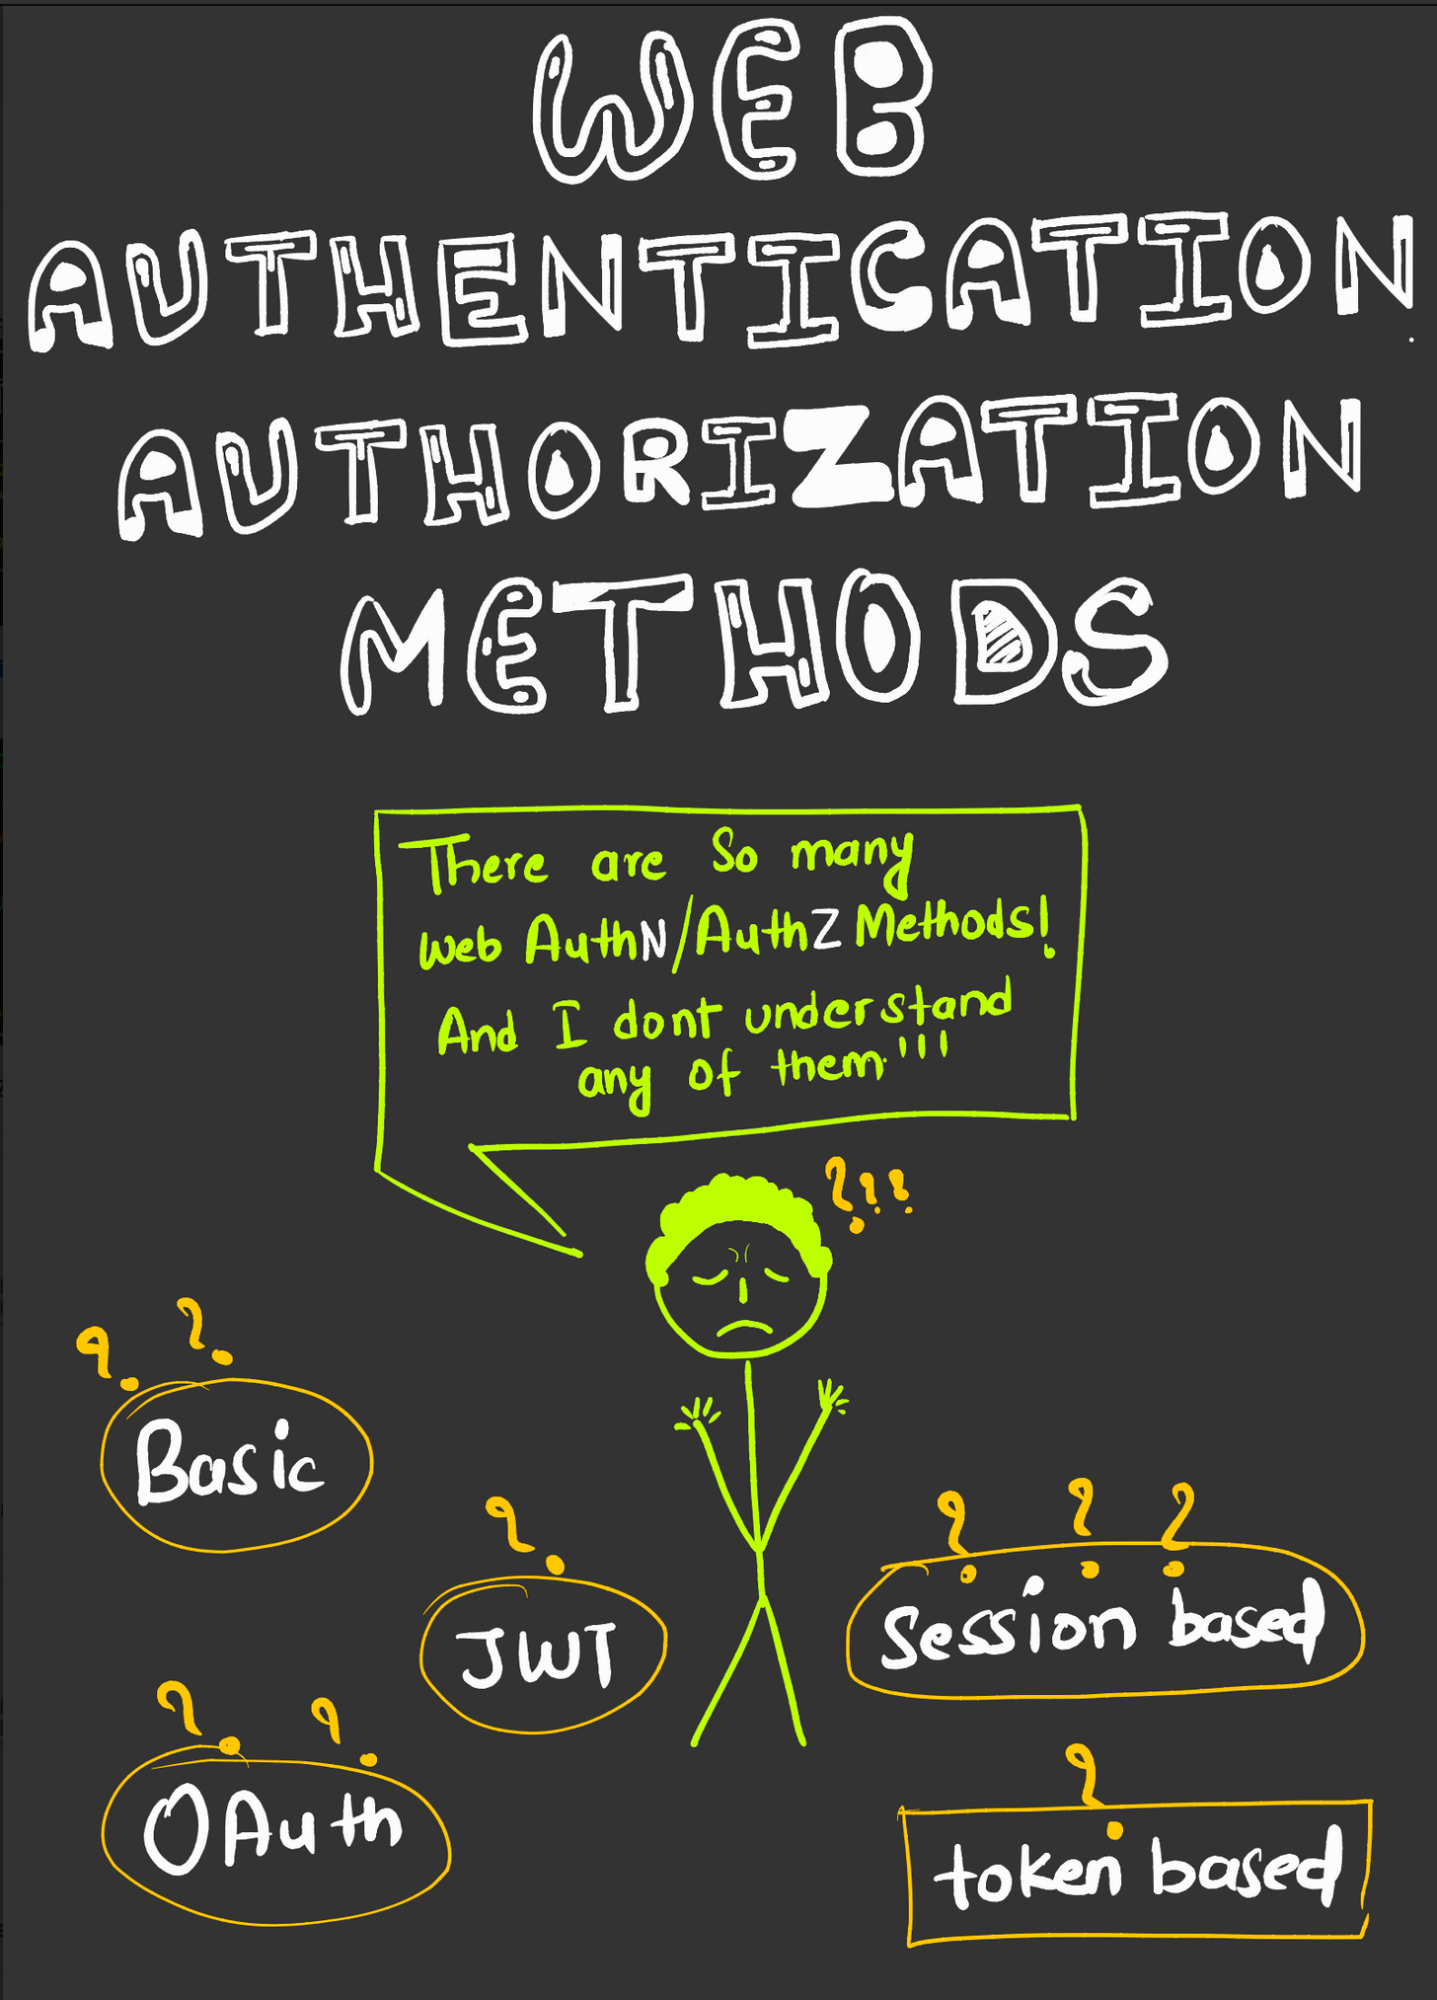 WEB
AUTHENTICATION
AUTHORIZATION
METHODS
There are So many
Web AuthN/AuthZ Methods!
And I dont understand
any of them.'''
???
? ?
Basic
?
JWT
? ? ?
Session based
? ?
OAuth
?
token based